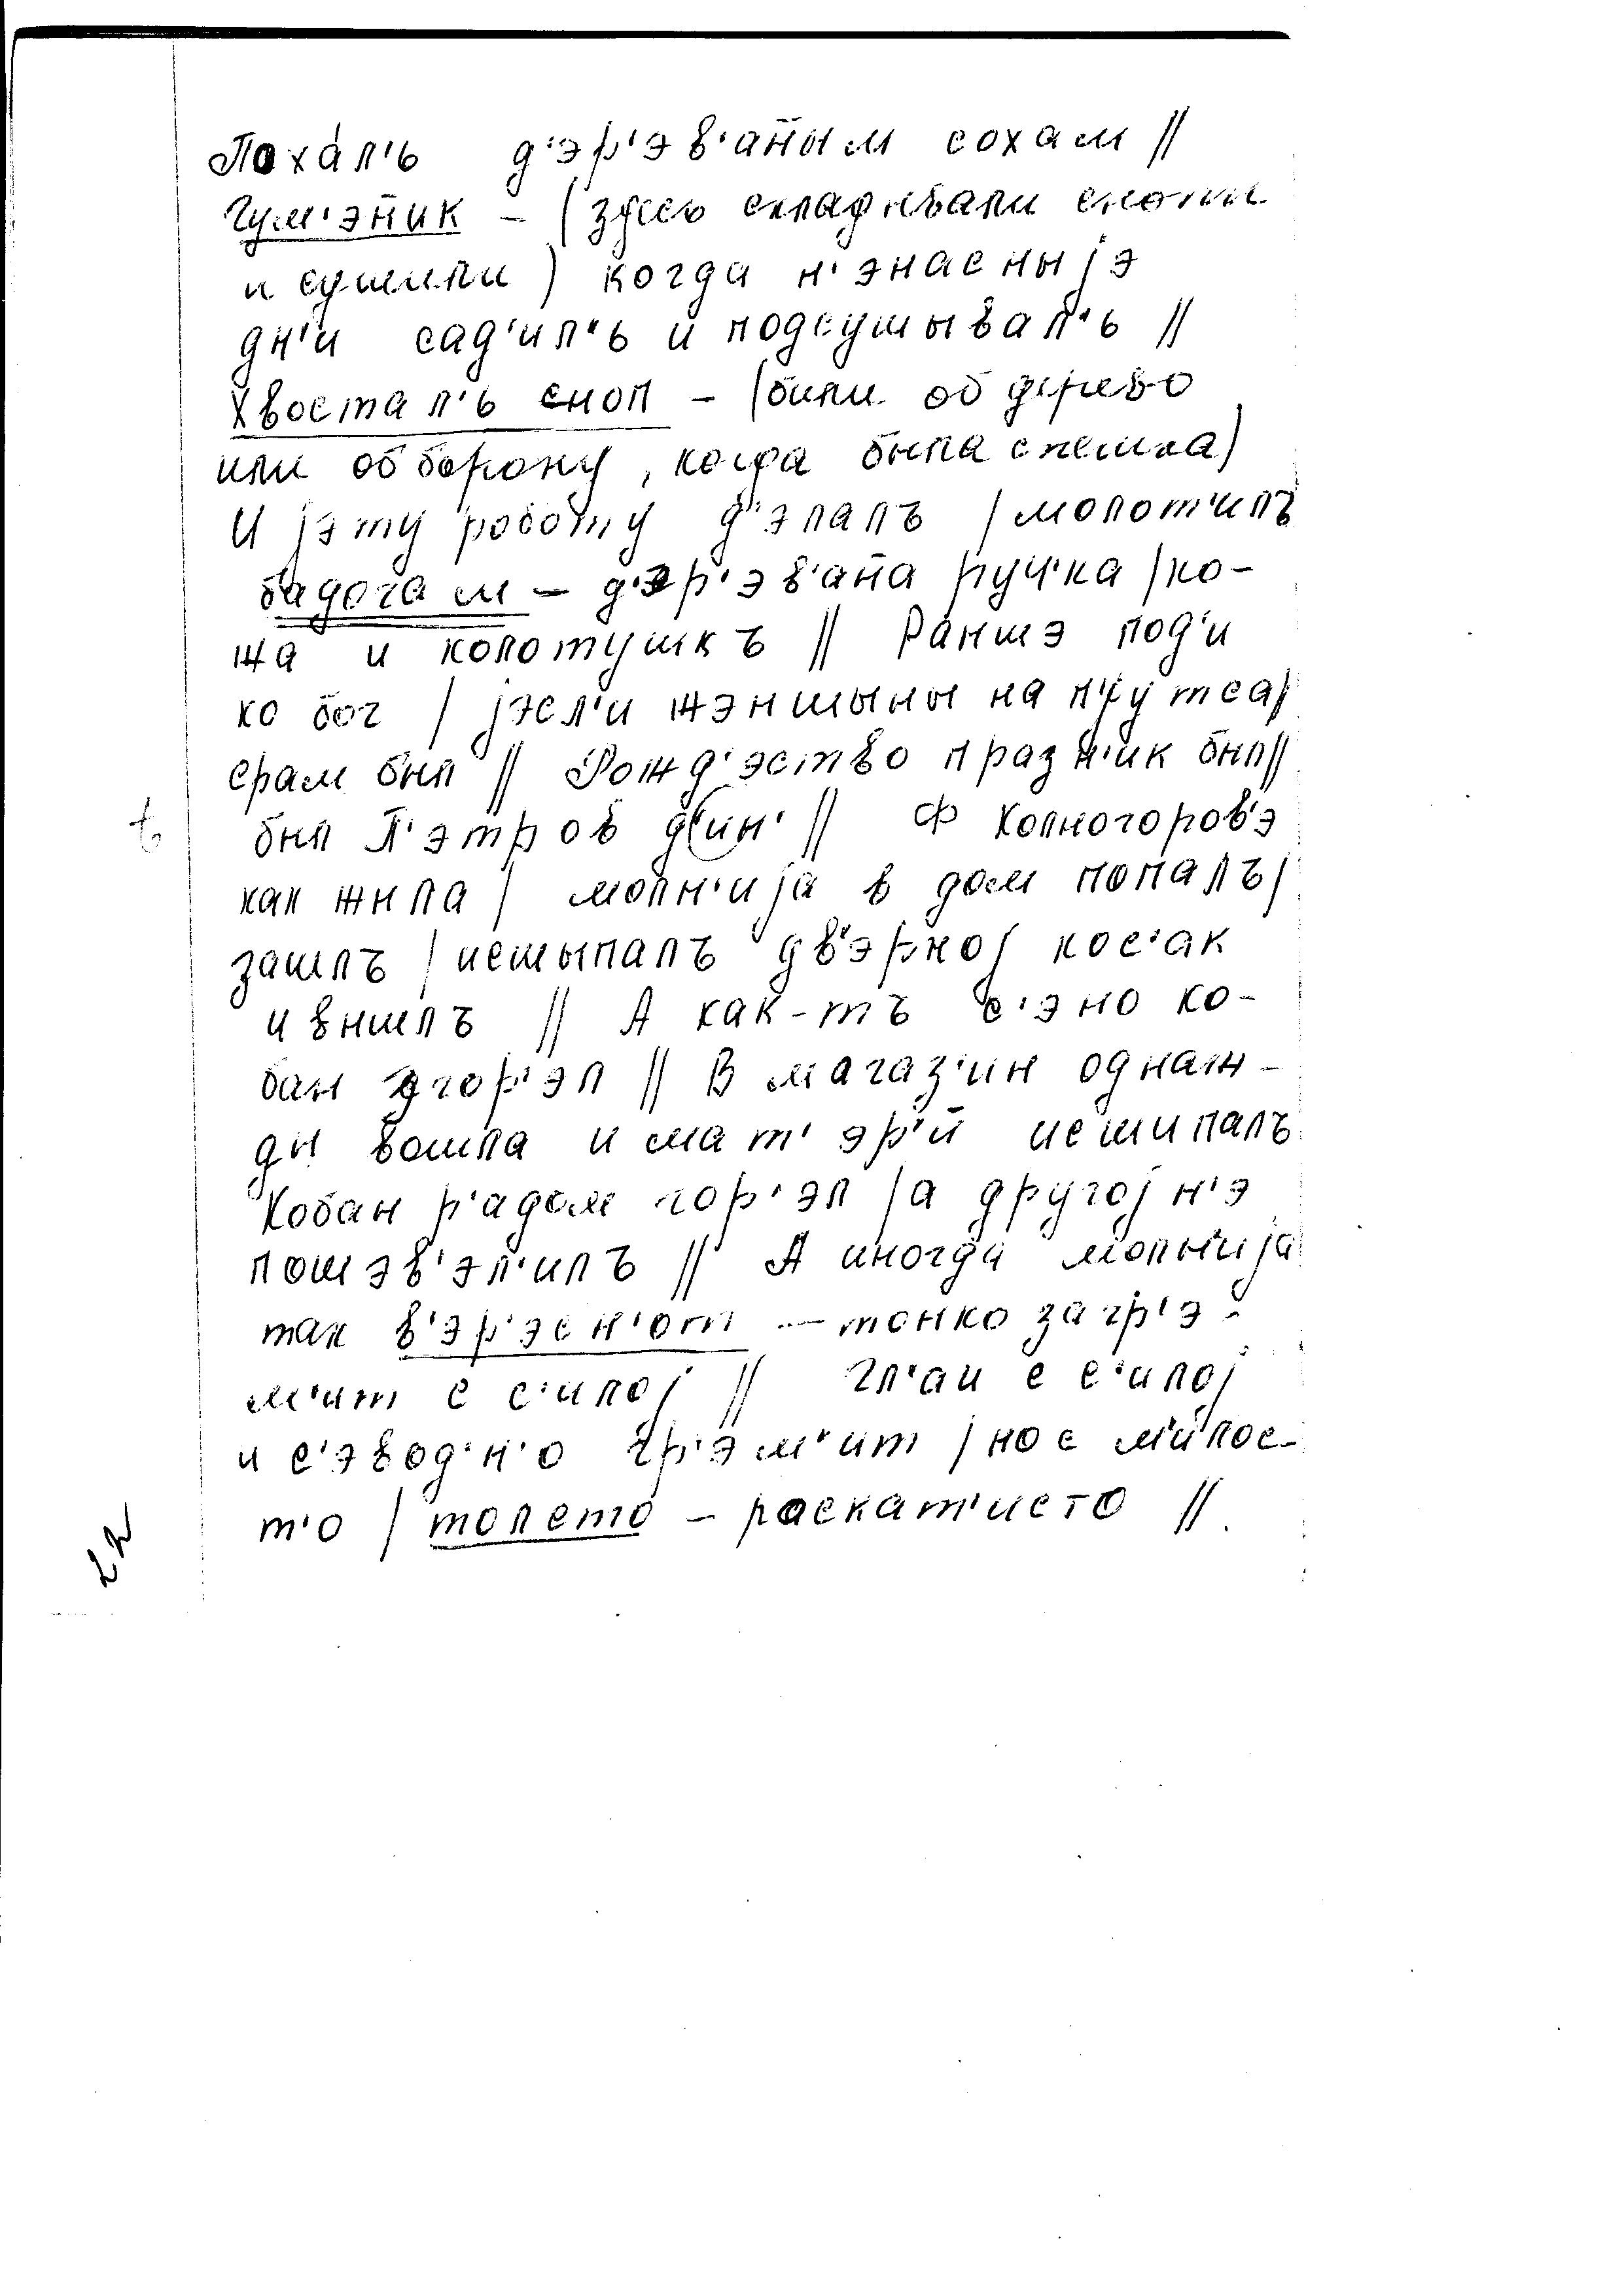 Пoха́л'ь д'эр'эв'а̄ным сохам //
Гум'э̄ник – (здесь складывали снопы
и сушили) когда н'энасныjэ
дн'и сад'ил'ь и подсушывал'ь //
Хвостал'ь сноп – (били об дерево
или об борону, когда была спешка)
И jэту роботу д'элалъ / молот'илъ
бадогам – д'эр'эв'а̄на ручка / ко-
жа и колотушкъ // Раншэ под'и
ко бог / jэсл'и жэншыны нап'jутса /
срам был // Рожд'эство празн'ик был //
был П'этров д'ин' // Ф Холногоров'э
как жила / молн'иjа в дом попалъ /
зашлъ / исшыпалъ дв'эрноj кос'ак
и вышлъ // А как-тъ с'эно ко-
бан згор'эл // В магаз'ин однаж-
ды вошла и мат'эр'й исшипалъ
Кобан р'адом гор'эл / а другоj н'э
пошэв'эл'илъ // А иногда молн'иjа
так в'эр'эсн'от – тонко загр'э-
м'ит с с'илоj // Гл'аи с с'илоj
и с'эвод'н'о гр'эм'ит / нос м'илос-
т'о / толсто – роскат'исто //
22